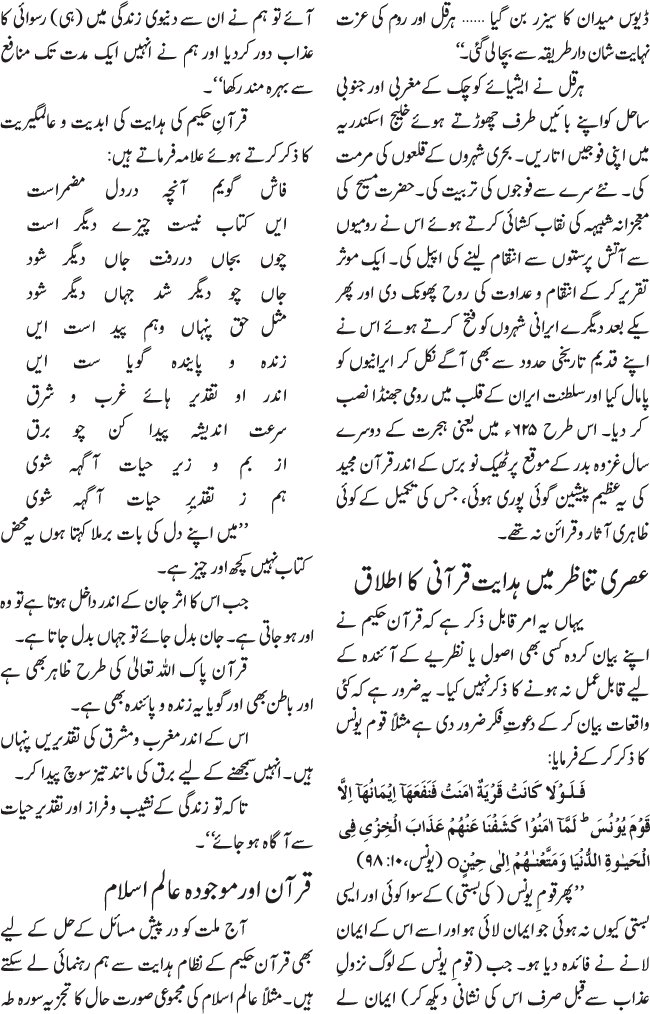 ڈیوس میدان کا سیزر بن گیا ...... ہرقل اور روم کی عزت
نہایت شان دار طریقہ سے بچا لی گئی۔‘‘
ہرقل نے ایشیائے کوچک کے مغربی اور جنوبی
ساحل کو اپنے بائیں طرف چھوڑتے ہوئے خلیج اسکندریہ
میں اپنی فوجیں اتاریں۔ بحری شہروں کے قلعوں کی مرمت
کی۔ نئے سرے سے فوجوں کی تربیت کی۔ حضرت مسیح کی
معجزانہ شبیہہ کی نقاب کشائی کرتے ہوئے اس نے رومیوں
سے آتش پرستوں سے انتقام لینے کی اپیل کی۔ ایک موثر
تقریر کر کے انتقام و عداوت کی روح پھونک دی اور پھر
یکے بعد دیگرے ایرانی شہروں کو فتح کرتے ہوئے اس نے
اپنے قدیم تاریخی حدود سے بھی آگے نکل کر ایرانیوں کو
پامال کیا اور سلطنت ایران کے قلب میں رومی جھنڈا نصب
کر دیا۔ اس طرح ۶۲۵ء میں یعنی ہجرت کے دوسرے
سال غزوہ بدر کے موقع پر ٹھیک نو برس کے اندر قرآن مجید
کی یہ عظیم پیشین گوئی پوری ہوئی، جس کی تکمیل کے کوئی
ظاہری آثار و قرائن نہ تھے۔
عصری تناظر میں ہدایت قرآنی کا اطلاق
یہاں یہ امر قابل ذکر ہے کہ قرآن حکیم نے
اپنے بیان کردہ کسی بھی اصول یا نظریے کے آئندہ کے
لیے قابل عمل نہ ہونے کا ذکر نہیں کیا۔ یہ ضرور ہے کہ کئی
واقعات بیان کر کے دعوتِ فکر ضرور دی ہے مثلاً قوم یونس
کا ذکر کر کے فرمایا:
فَلَوْلَا كَانَتْ قَرْيَةٌ اٰمَنَتْ فَنَفَعَهَآ اِيْمَانُهَآ اِلَّا
قَوْمَ يُوْنُسَ ؕ لَمَّآ اٰمَنُوْا كَشَفْنَا عَنْهُمْ عَذَابَ الْخِزْيِ فِى
الْحَيٰوةِ الدُّنْيَا وَمَتَّعْنٰهُمْ اِلٰى حِيْنٍ۝ (یونس، ۱۰: ۹۸)
’’پھر قومِ یونس (کی بستی) کے سوا کوئی اور ایسی
بستی کیوں نہ ہوئی جو ایمان لائی ہو اور اسے اس کے ایمان
لانے نے فائدہ دیا ہو۔ جب (قوم یونس کے لوگ نزولِ
عذاب سے قبل صرف اس کی نشانی دیکھ کر) ایمان لے
آئے تو ہم نے ان سے دنیوی زندگی میں (ہی) رسوائی کا
عذاب دور کردیا اور ہم نے انہیں ایک مدت تک منافع
سے بہرہ مند رکھا‘‘۔
قرآنِ حکیم کی ہدایت کی ابدیت و عالمگیریت
کا ذکر کرتے ہوئے علامہ فرماتے ہیں:
فاش گویم آنچہ دردل مضمراست
ایں کتاب نیست چیزے دیگر است
چوں بجاں دررفت جاں دیگر شود
جاں چو دیگر شد جہاں دیگر شود
مثل حق پنہاں وہم پید است ایں
زندہ و پایندہ گویا ست ایں
اندر او تقدیر ہائے غرب و شرق
سرعت اندیشہ پیدا کن چو برق
از بم و زیر حیات آگہہ شوی
ہم ز تقدیرِ حیات آگہہ شوی
’’میں اپنے دل کی بات برملا کہتا ہوں یہ محض
کتاب نہیں کچھ اور چیز ہے۔
جب اس کا اثر جان کے اندر داخل ہوتا ہے تو وہ
اور ہو جاتی ہے۔ جان بدل جائے تو جہاں بدل جاتا ہے۔
قرآن پاک اللہ تعالیٰ کی طرح ظاہر بھی ہے
اور باطن بھی اور گویا یہ زندہ و پائندہ بھی ہے۔
اس کے اندر مغرب و مشرق کی تقدیریں پنہاں
ہیں۔ انہیں سمجھنے کے لیے برق کی مانند تیز سوچ پیدا کر۔
تا کہ تو زندگی کے نشیب و فراز اور تقدیر حیات
سے آگاہ ہو جائے‘‘۔
قرآن اور موجودہ عالم اسلام
آج ملت کو در پیش مسائل کے حل کے لیے
بھی قرآن حکیم کے نظام ہدایت سے ہم رہنمائی لے سکتے
ہیں۔ مثلاً عالم اسلام کی مجموعی صورت حال کا تجزیہ سورہ طہ